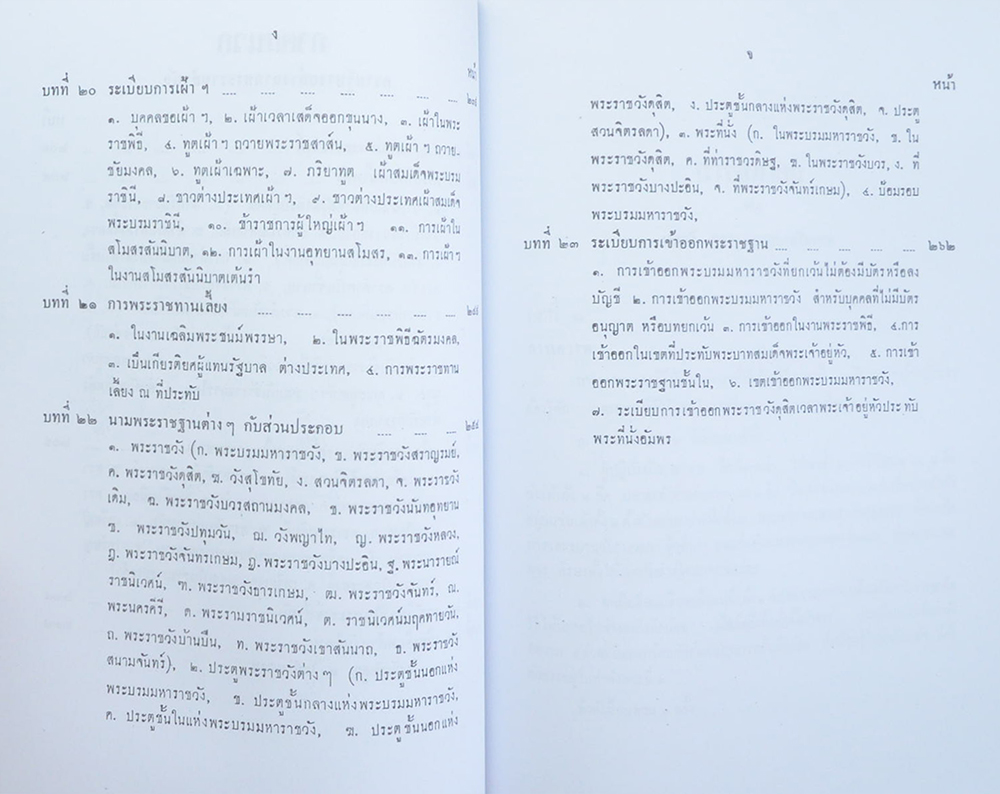 ง
หน้า
บทที่ ๒๐ ระเบียบการเฝ้า ฯ .... .... .... .... .... .... ....
๑. บุคคลขอเฝ้า ฯ, ๒. เฝ้าเวลาเสด็จออกขุนนาง, ๓. เฝ้าในพระ
ราชพิธี, ๔. ทูตเฝ้า ฯ ถวายพระราชสาส์น, ๕. ทูตเฝ้า ฯ ถวาย.
ชัยมงคล, ๖. ทูตเฝ้าเฉพาะ, ๗. ภริยาทูต เฝ้าสมเด็จพระบรม
ราชินี, ๘. ชาวต่างประเทศเฝ้า ฯ, ๙. ชาวต่างประเทศเฝ้าสมเด็จ
พระบรมราชินี, ๑๐. ข้าราชการผู้ใหญ่เฝ้า ฯ ๑๑. การเฝ้าใน
สโมสรสันนิบาต, ๑๒. การเฝ้าในงานอุทยานสโมสร, ๑๓. การเฝ้า ฯ
ในงานสโมสรสันนิบาตเต้นรำ
บทที่ ๒๑ การพระราชทานเลี้ยง .... .... .... .... ....
๑. ในงานเฉลิมพระชนม์พรรษา, ๒. ในพระราชพิธีฉัตรมงคล,
๓. เป็นเกียรติยศผู้แทนรัฐบาล ต่างประเทศ, ๔. การพระราชทาน
เลี้ยง ณ ที่ประทับ
บทที่ ๒๒ นามพระราชฐานต่าง ๆ กับส่วนประกอบ .... .... .... ๒๕๔
๑. พระราชวัง (ก. พระบรมมหาราชวัง, ข. พระราชวังสราญรมย์,
ค. พระราชวังดุสิต, ฆ. วังสุโขทัย, ง. สวนจิตรลดา, จ. พระราชวัง
เดิม, ฉ. พระราชวังบวรสถานมงคล, ช. พระราชวังนันทอุทยาน
ซ. พระราชวังปทุมวัน, ฌ. วังพญาไท, ญ. พระราชวังหลวง,
ฎ. พระราชวังจันทรเกษม, ฏ. พระราชวังบางปะอิน, ฐ. พระนารายณ์
ราชนิเวศน์, ฑ. พระราชวังธารเกษม, ฒ. พระราชวังจันทร์, ณ.
พระนครคีรี, ด. พระรามราชนิเวศน์, ต. ราชนิเวศน์มฤคทายวัน,
ถ. พระราชวังบ้านปืน, ท. พระราชวังเขาสัตนาถ, ธ. พระราชวัง
สนามจันทร์), ๒. ประตูพระราชวังต่าง ๆ (ก. ประตูชั้นนอกแห่ง
พระบรมมหาราชวัง, ข. ประตูชั้นกลางแห่งพระบรมมหาราชวัง,
ค. ประตูชั้นในแห่งพระบรมมหาราชวัง, ฆ. ประตูชั้นนอกแห่ง
หน้า
พระราชวังดุสิต, ง. ประตูชั้นกลางแห่งพระราชวังดุสิต, จ. ประตู
สวนจิตรลดา), ๓. พระที่นั่ง (ก. ในพระบรมมหาราชวัง, ข. ใน
พระราชวังดุสิต, ค. ที่ท่าราชวรดิษฐ, ฆ. ในพระราชวังบวร, ง. ที่
พระราชวังบางปะอิน, จ. ที่พระราชวังจันทร์เกษม), ๔. ป้อมรอบ
พระบรมมหาราชวัง,
บทที่ ๒๓ ระเบียบการเข้าออกพระราชฐาน .... .... .... .... .... ๒๖๒
๑. การเข้าออกพระบรมมหาราชวังที่ยกเว้นไม่ต้องมีบัตรหรือลง
บัญชี ๒. การเข้าออกพระบรมมหาราชวัง สำหรับบุคคลที่ไม่มีบัตร
อนุญาต หรือบทยกเว้น ๓. การเข้าออกในงานพระราชพิธี, ๔.การ
เข้าออกในเขตที่ประทับพระบาทสมเด็จพระเจ้าอยู่หัว, ๕. การเข้า
ออกพระราชฐานชั้นใน, ๖. เขตเข้าออกพระบรมมหาราชวัง,
๗. ระเบียบการเข้าออกพระราชวังดุสิตเวลาพระเจ้าอยู่หัวประทับ
พระที่นั่งอัมพร